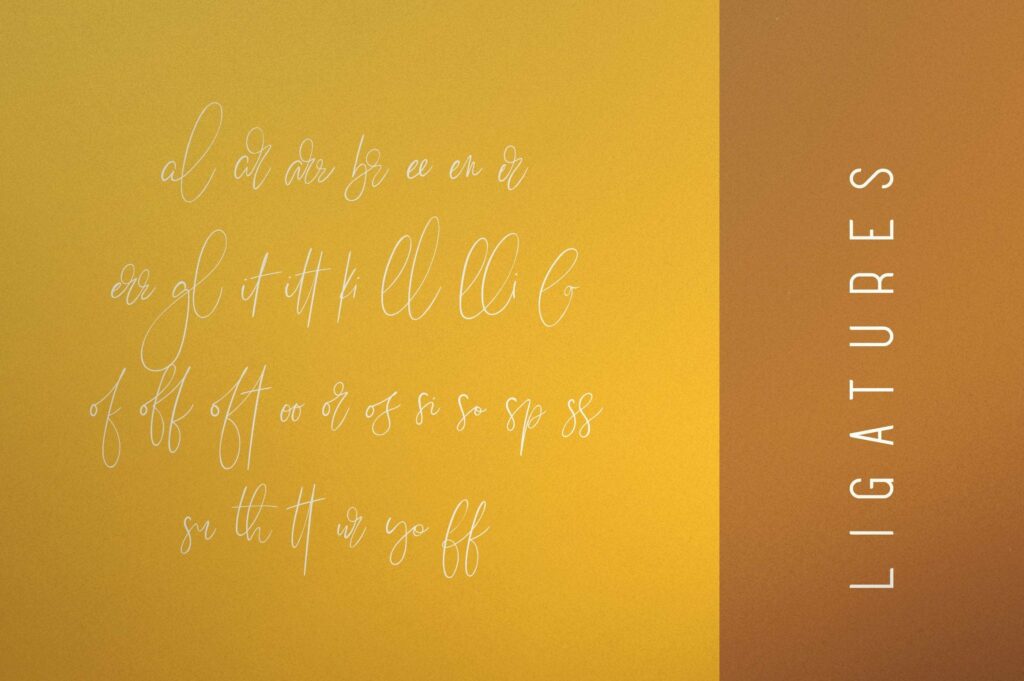 al ar arr br ee en er
err gl it itt ki ll lli lo
of off oft oo or os si so sp ss
su th tt ur yo ff
LIGATURES